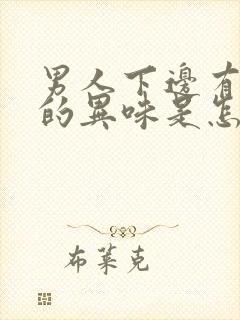 男人下邊有
的異味是怎
布萊克